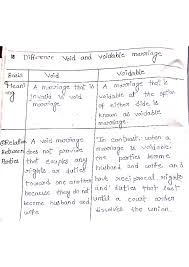 Difference Void and voidable marriage
Basis Void Voidable
Meaning A marriage that is invalid is void marriage
A marriage that is voidable at the option of either side is known as voidable marriage.
Relation Between Parties
A void marriage does not provide that couples any rights or duties toward one another because they do not become husband and wife
In contrast, when a marriage is voidable, the parties become husband and wife and have reciprocal rights and duties that last until a court order dissolves the union.